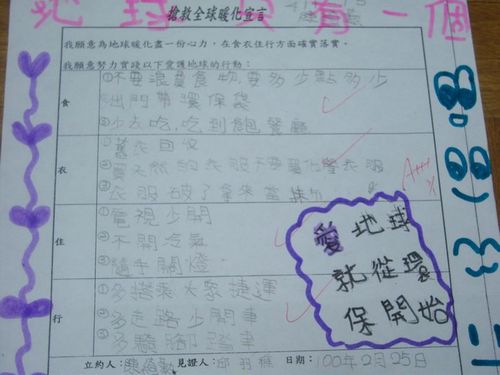 地球只有一個
搶救全球暖化宣言
我願意為地球暖化盡一份心力，在食衣住行方面確實落實。
我願意努力實踐以下愛護地球的行動：
食
①不要浪費食物,要多少點多少
②出門帶環保袋
③少去吃,吃到飽餐廳
衣
①舊衣回收
②買天然的衣服不要買化學衣服
③衣服破了拿來當抹布
A+++
住
①電視少開
②不開冷氣
③隨手關燈
愛地球
就從環
保開始
行
①多搭乘大眾捷運
②多走路少開車
③多騎腳踏車
立約人： 見證人：邱羽 日期：100年2月25日